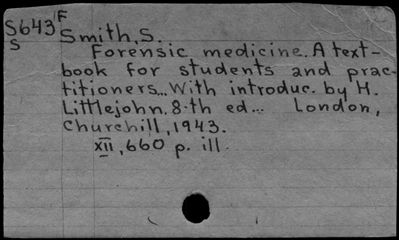 F
S643 Smith, S.
S
Forensic medicine. A text-
book for students and prac-
titioners... With introduc. by H.
Littlejohn. 8-th ed... London,
Churchill, 1943.
XII, 660 p. ill.